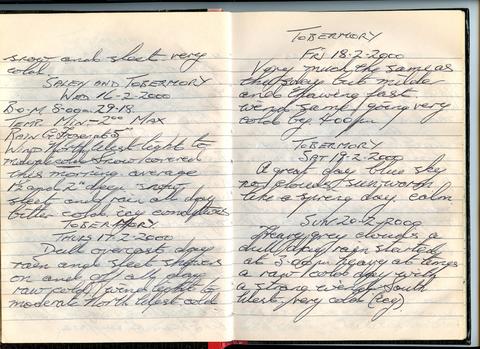 snow and sleet very
cold.
SALEN AND TOBERMORY
WED 16-2-2000
B.O.M. 8.00am 29.18
TEMP MIN -2°° MAX
RAIN &
Wind North West light to
moderate snow covered
this morning average
deep snow
sleet and rain all day
bitter cold icy conditions
TOBERMORY
THURS 17-2-2000
Dull overcast day
rain and sleet showers
on and off all day
raw cold wind light to
moderate North West cold
TOBERMORY
FRI 18-2-2000
Very much the same as
Thursday but milder
and thawing fast
wind same going very
cold by 4.00pm
TOBERMORY
SAT 19-2-2000
A great day blue sky
no clouds sun warm
like a spring day calm
SUN 20-2-2000
Heavy grey clouds a
dull day rain started
at 3.00pm heavy at times
a raw cold day with
a strong wind South
West, very cold (icy)